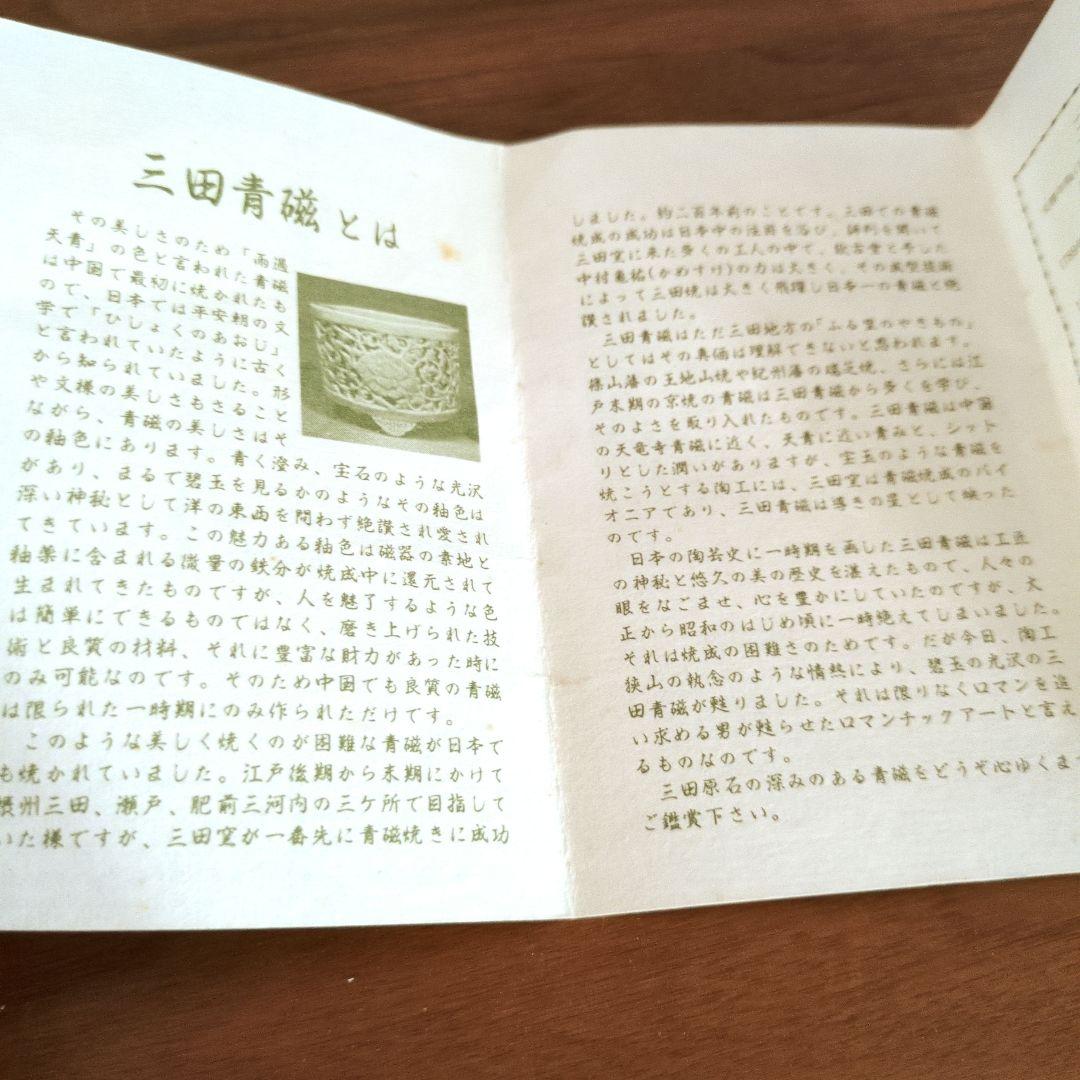 三田青磁とは
その美しさのため「雨過
天青」の色と言われた青磁
は中国で最初に焼かれたも
ので、日本では平安朝の文
学で「ひしょくのあおじ」
と言われていたように古く
から知られていました。形
や文様の美しさもさること
ながら、青磁の美しさはそ
の釉色にあります。青く澄み、宝石のような光沢
があり、まるで碧玉を見るかのようなその釉色は
深い神秘として洋の東西を問わず絶讃され愛され
てきています。この魅力ある釉色は磁器の素地と
釉薬に含まれる微量の鉄分が焼成中に還元されて
生まれてきたものですが、人を魅了するような色
は簡単にできるものではなく、磨き上げられた技
術と良質の材料、それに豊富な財力があった時に
のみ可能なのです。そのため中国でも良質の青磁
は限られた一時期にのみ作られただけです。
このような美しく焼くのが困難な青磁が日本で
も焼かれていました。江戸後期から末期にかけて
摂州三田、瀬戸、肥前三河内の三ケ所で目指して
いた様ですが、三田窯が一番先に青磁焼きに成功
しました。約二百年前のことです。三田での青磁
焼成の成功は日本中の注目を浴び、評判を聞いて
三田窯に来た多くの工人の中で、欽古堂と号した
中村亀祐(かめすけ)の力は大きく、その成型技術
によって三田焼は大きく飛躍し日本一の青磁と絶
讃されました。
三田青磁はただ三田地方の「ふる里のやきもの」
としてはその真価は理解できないと思われます。
篠山藩の王地山焼や紀州藩の瑞芝焼、さらには江
戸末期の京焼の青磁は三田青磁から多くを学び、
そのよさを取り入れたものです。三田青磁は中国
の天竜寺青磁に近く、天青に近い青みと、シット
リとした潤いがありますが、宝玉のような青磁を
焼こうとする陶工には、三田窯は青磁焼成のパイ
オニアであり、三田青磁は導きの星として映った
のです。
日本の陶芸史に一時期を画した三田青磁は工匠
の神秘と悠久の美の歴史を湛えたもので、人々の
眼をなごませ、心を豊かにしていたのですが、大
正から昭和のはじめ頃に一時絶えてしまいました。
それは焼成の困難さのためです。だが今日、陶工
狭山の執念のような情熱により、碧玉の光沢の三
田青磁が甦りました。それは限りなくロマンを追
い求める男が甦らせたロマンチックアートと言え
るものなのです。
三田原石の深みのある青磁をどうぞ心ゆくま
ご鑑賞下さい。